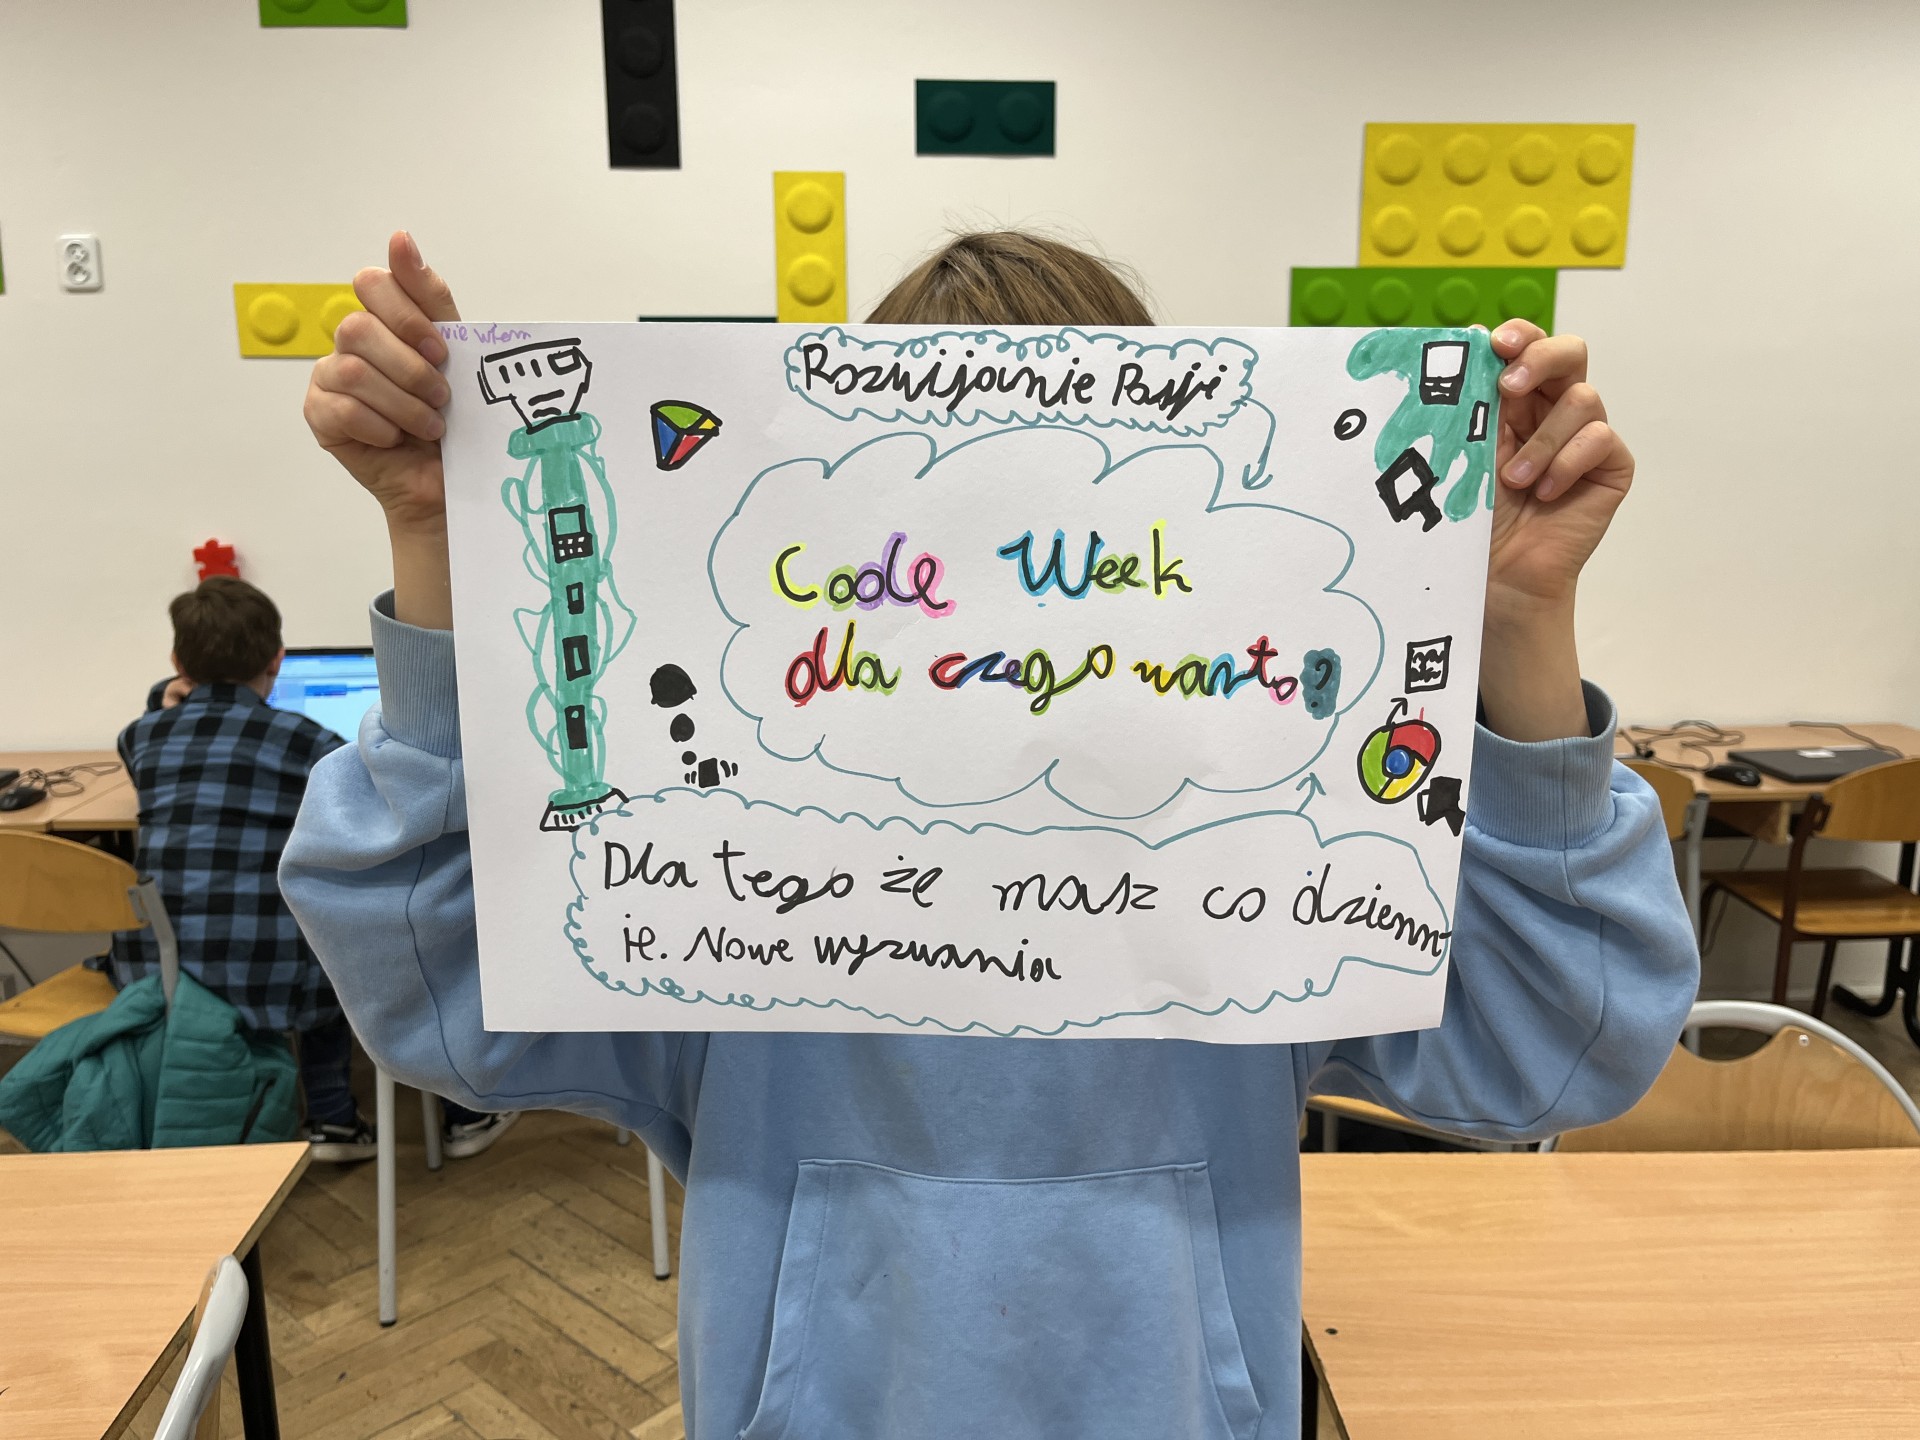 nie wiem
Rozwijanie Pasji
Code Week
dla czego warto?
Dla tego że masz co dzienn
ie. Nowe wyzwania